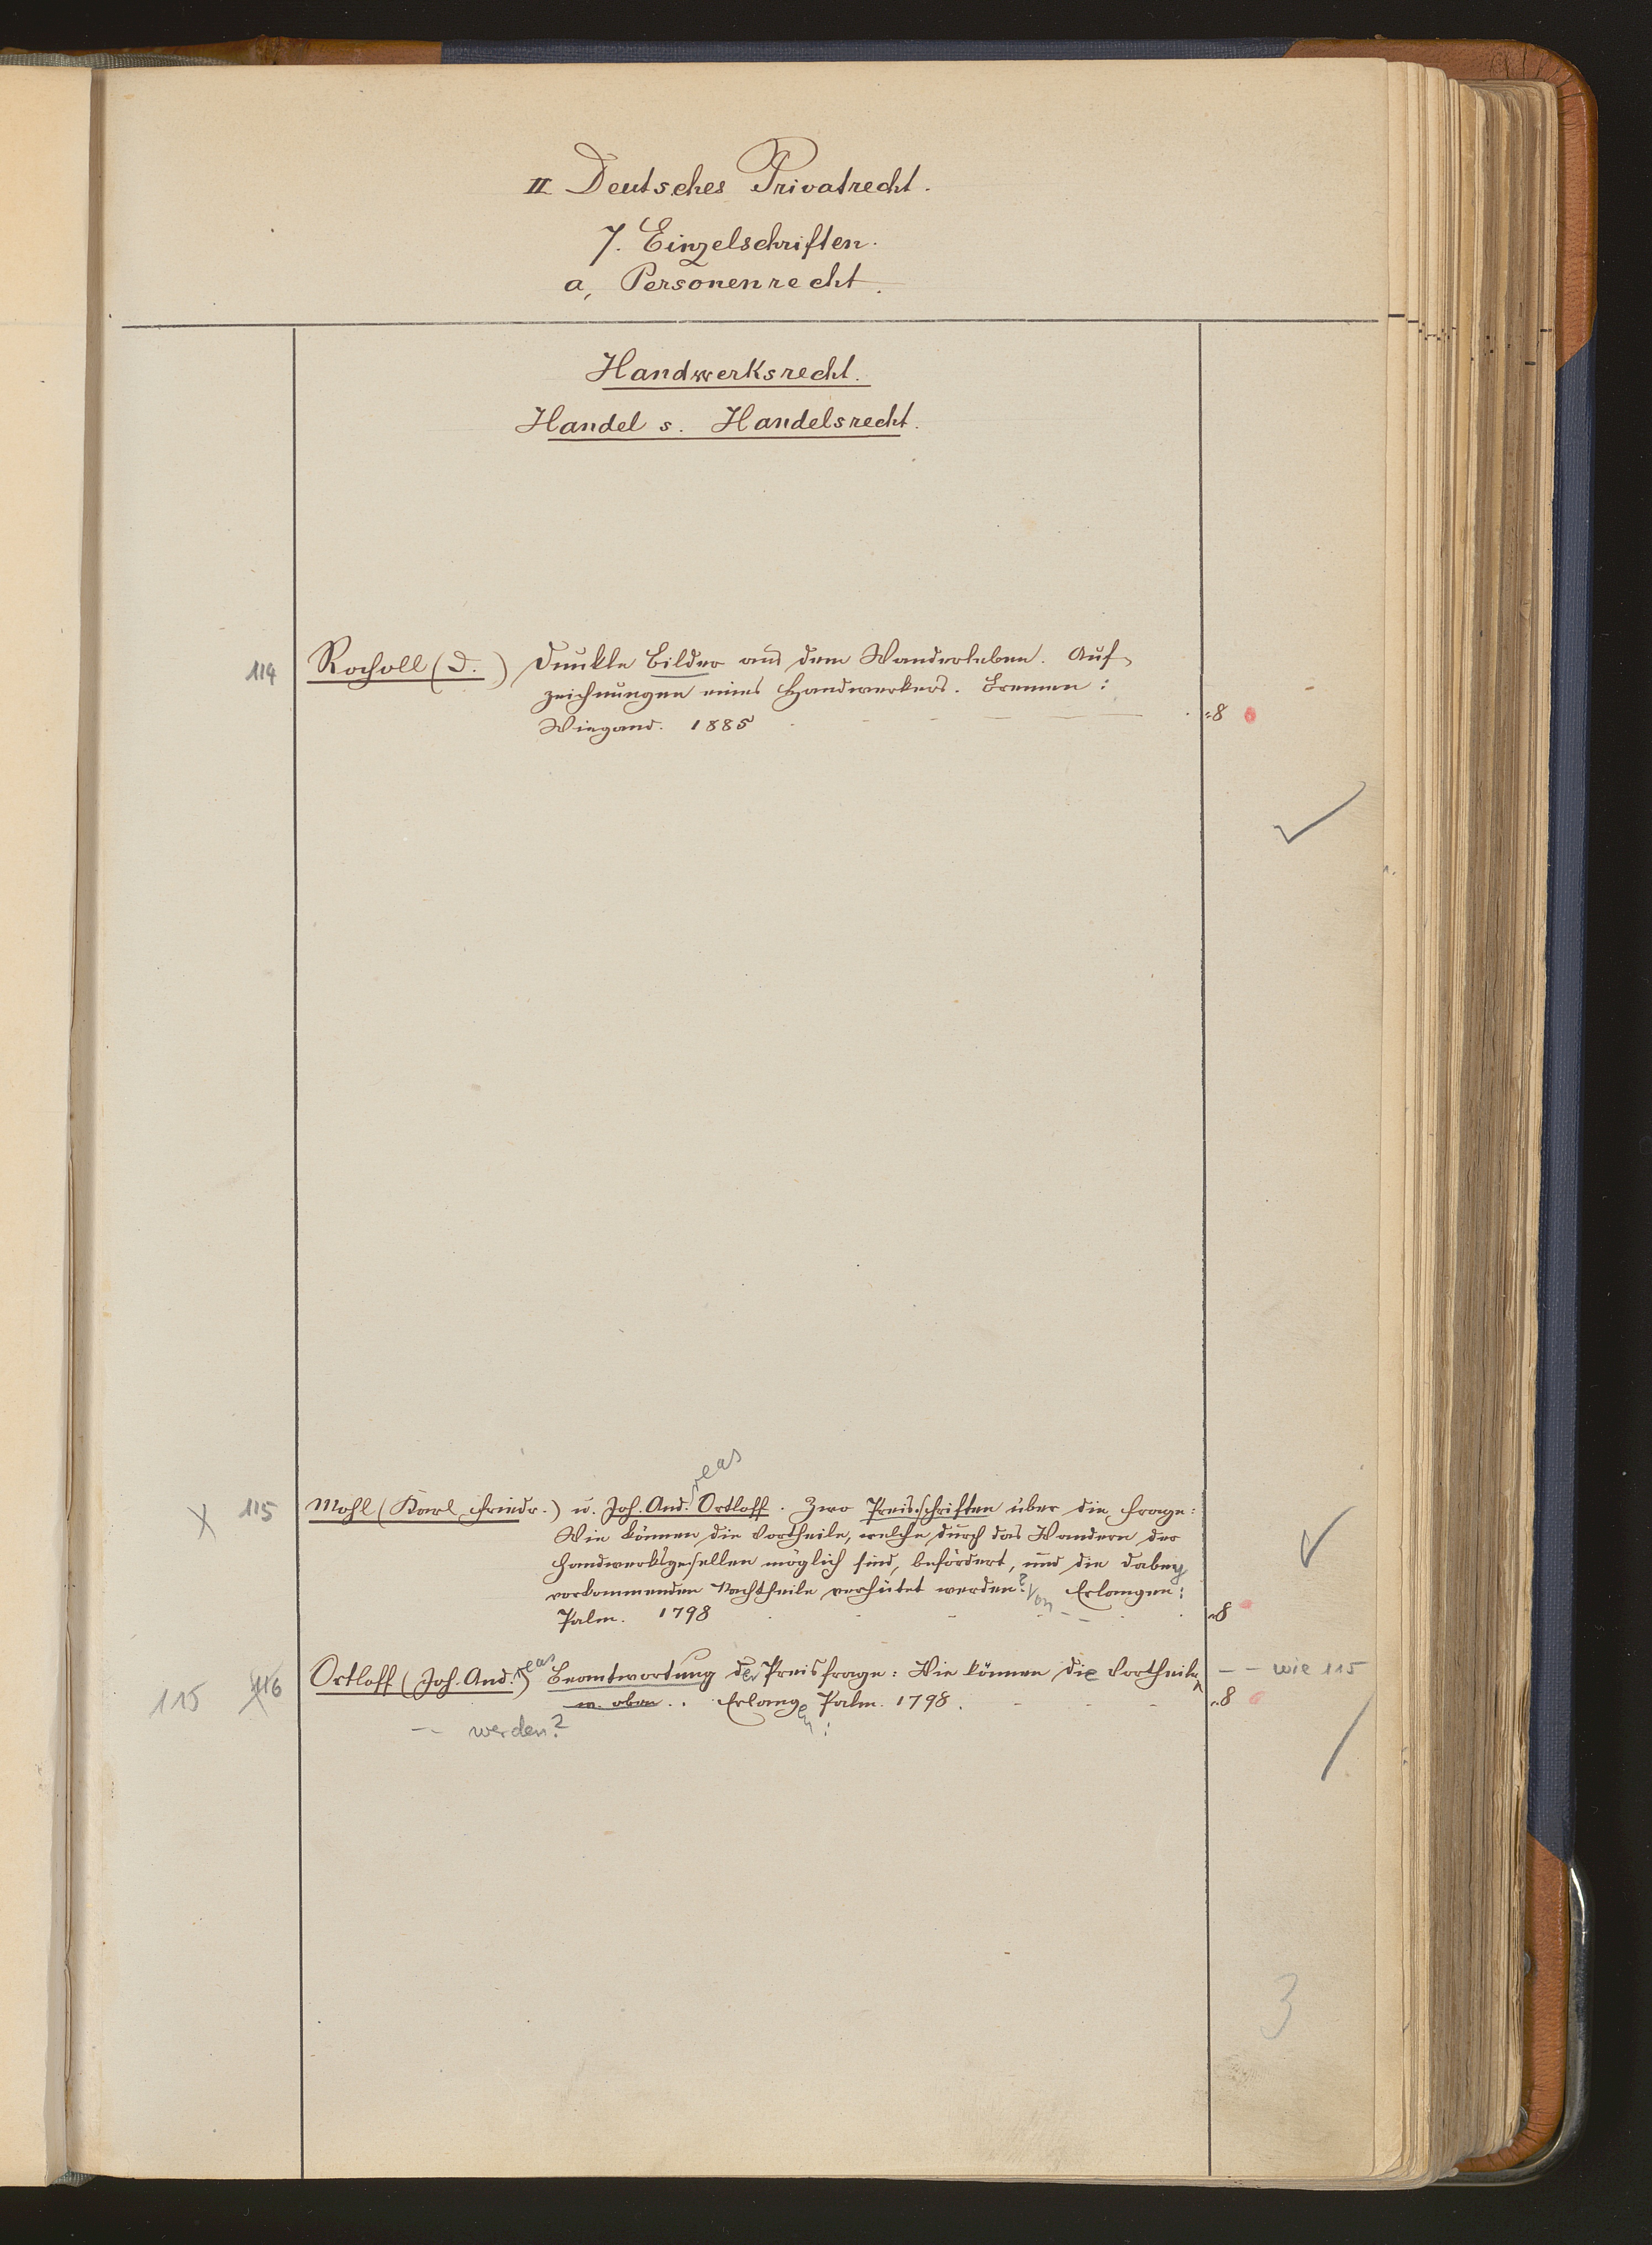 II Deutsches Privatrecht.
7. Einzelschriften.
a, Personenrecht.
Handwerksrecht.
Handel s. Handelsrecht.
114 Rocholl (D.) Dunkle Bilder aus dem Wanderleben. Auf-
zeichnungen eines Handwerkers. Bremen:
Wiegand. 1885 - - - - - 8
reas
X 115 Mohl (Karl Friedr.) u. Joh. And. Ortloff. Zwo Preisschriften über die Frage:
Wie können die Vortheile, welche durch das Wandern der
Handwerksgesellen möglich sind, befördert, und die dabey
vorkommenden Nachtheile verhütet werden? Von - - Erlangen:
Palm. 1798 - - - 8
115 116 Ortloff (Joh. Andreas) Beantwortung der Preisfrage: Wie können die Vortheile - - wie 115
w. oben.. Erlangen: Palm. 1798. - - - 8
-- werden?
3